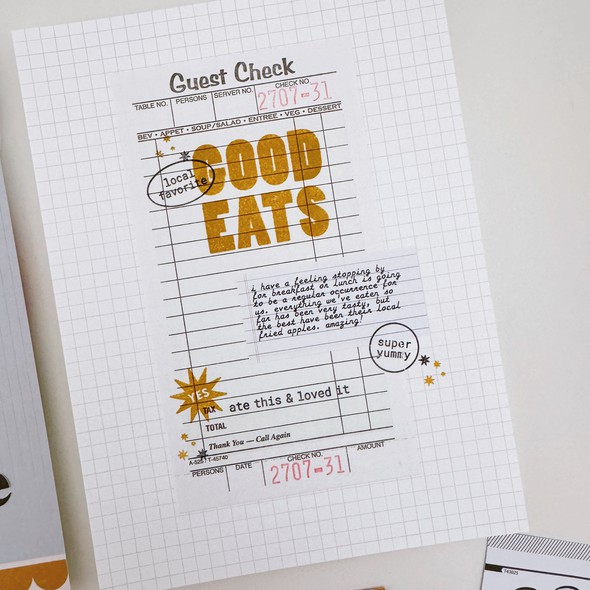 Guest Check
TABLE NO. PERSONS SERVER NO. CHECK NO.
2707-31
BEV • APPET • SOUP/SALAD • ENTREE • VEG • DESSERT
local
favorite
GOOD
EATS
i have a feeling stopping by
for breakfast or lunch is going
to be a regular occurrence for
us. everything we've eaten so
far has been very tasty, but
the best have been their local
fried apples. amazing!
super
yummy
YES
TAX
ate this & loved it
TOTAL
Thank You — Call Again
T-45740
PERSONS DATE CHECK NO. AMOUNT
2707-31
e